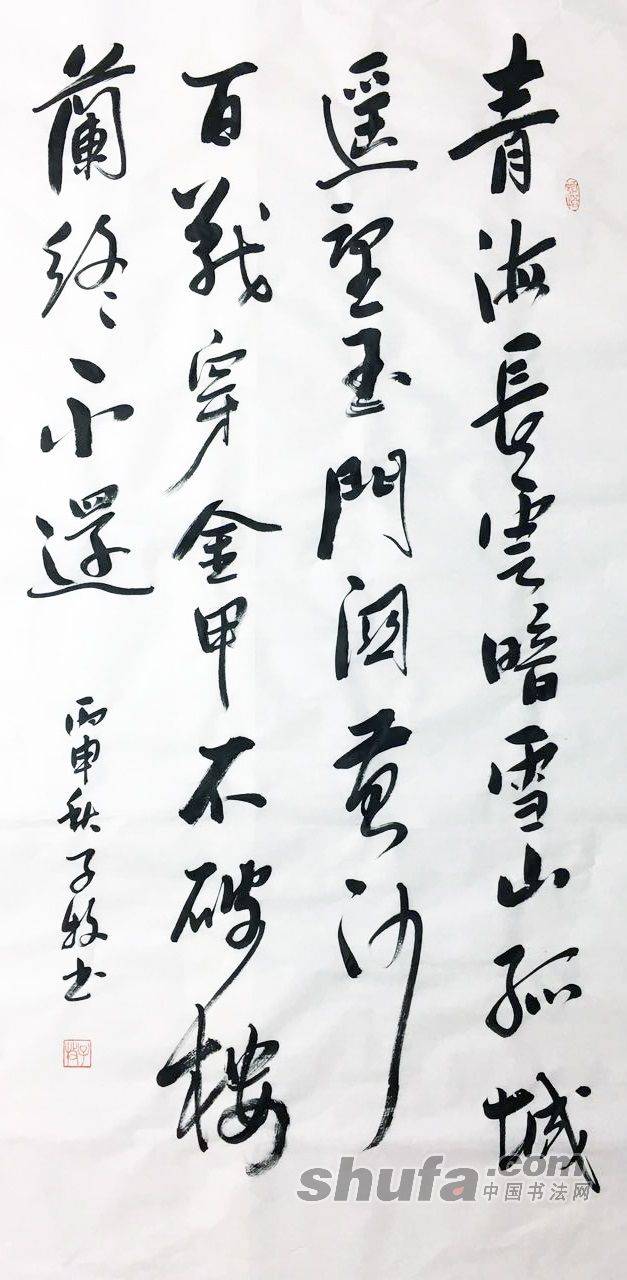 青海長雲暗雪山孤城
遥望玉門關黄沙
百戰穿金甲不破樓
蘭終不還
丙申秋子牧书
子牧
shufa.com
中国书法网